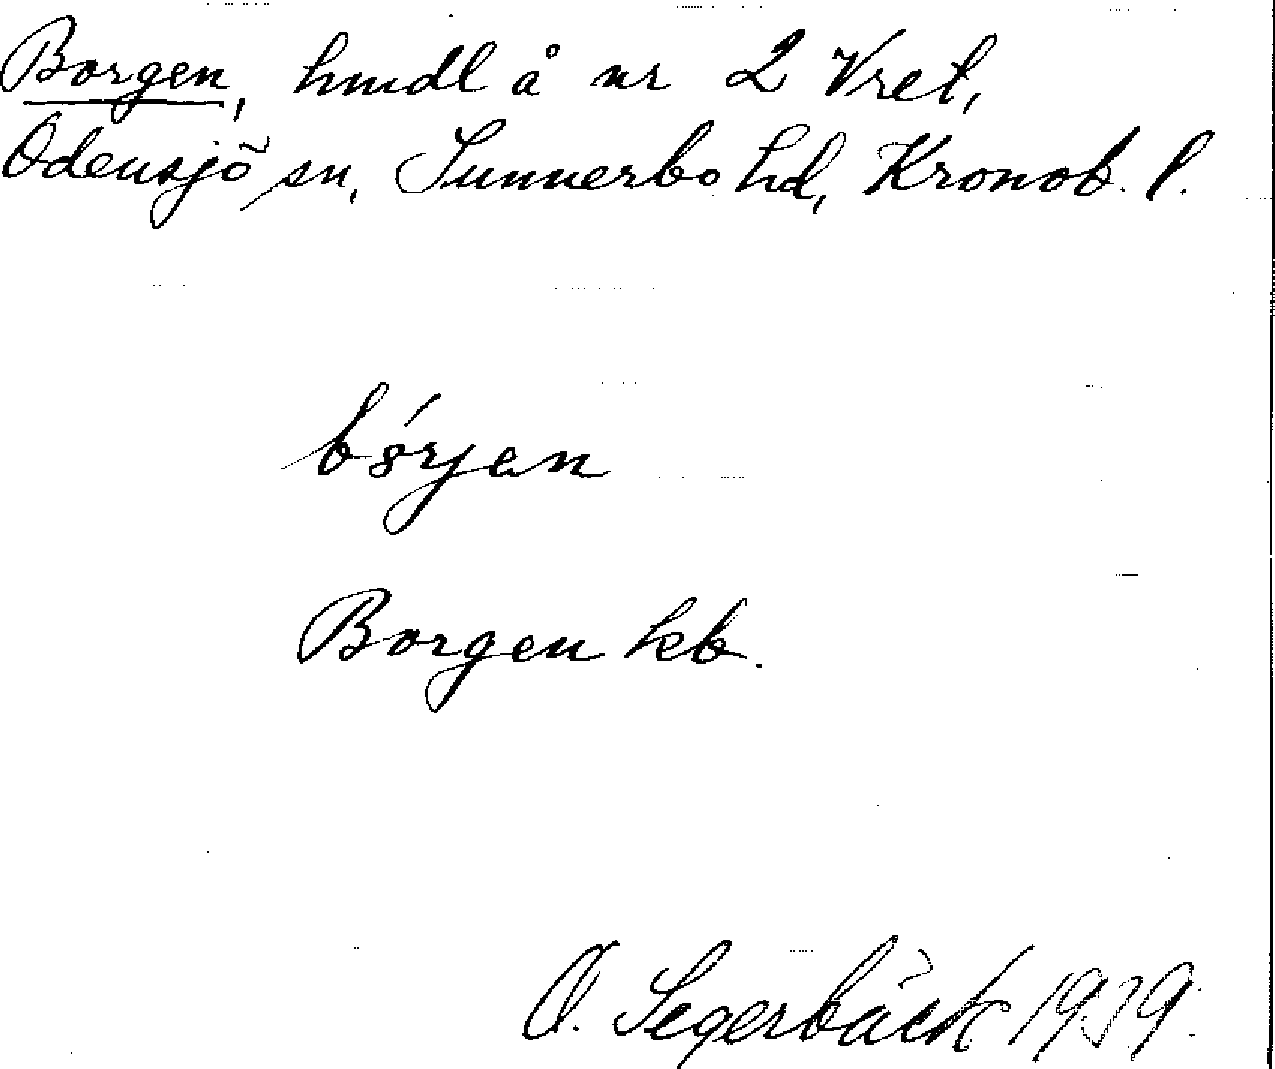 Borgen, hmdl å nr 2 Vret,
Odensjö sn, Sunnerbo hd, Kronob. l.
Borgen kb.
O. Segerbäck 1939.